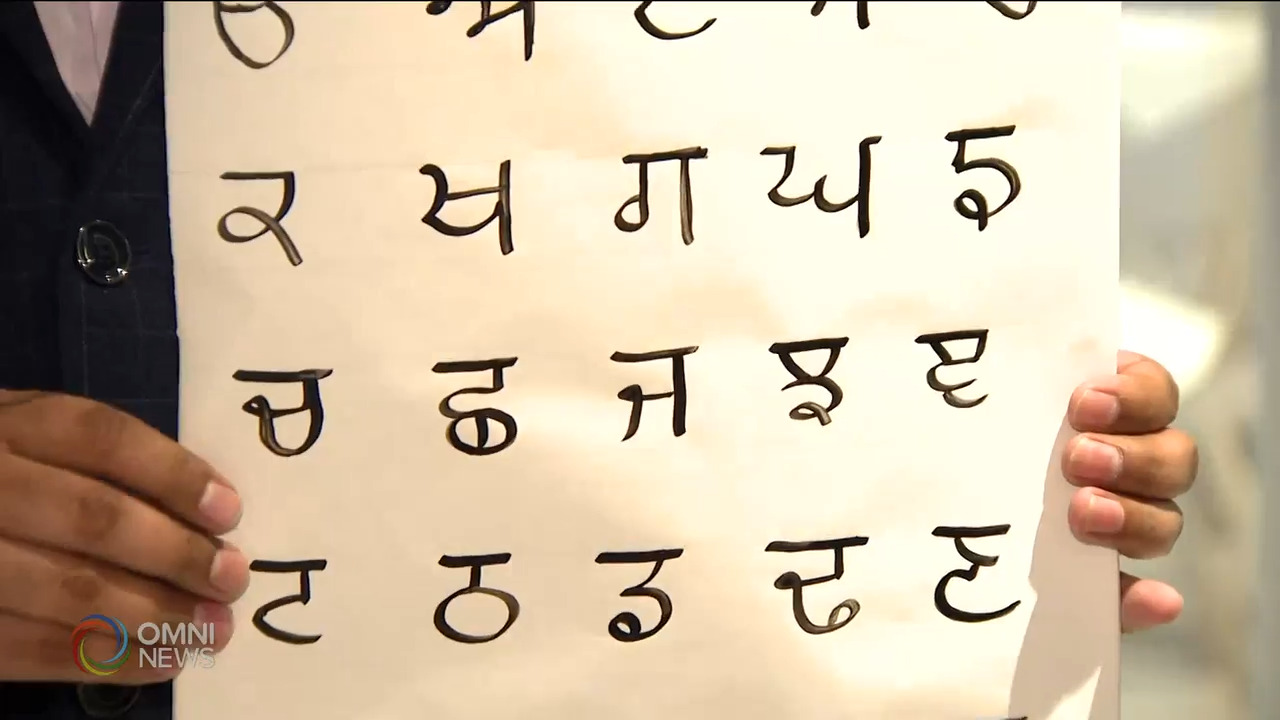 ੳ ਅ ੲ ਸ ਹ
ਕ ਖ ਗ ਘ ਙ
ਚ ਛ ਜ ਝ ਞ
ਟ ਠ ਡ ਢ ਣ
OMNI
NEWS